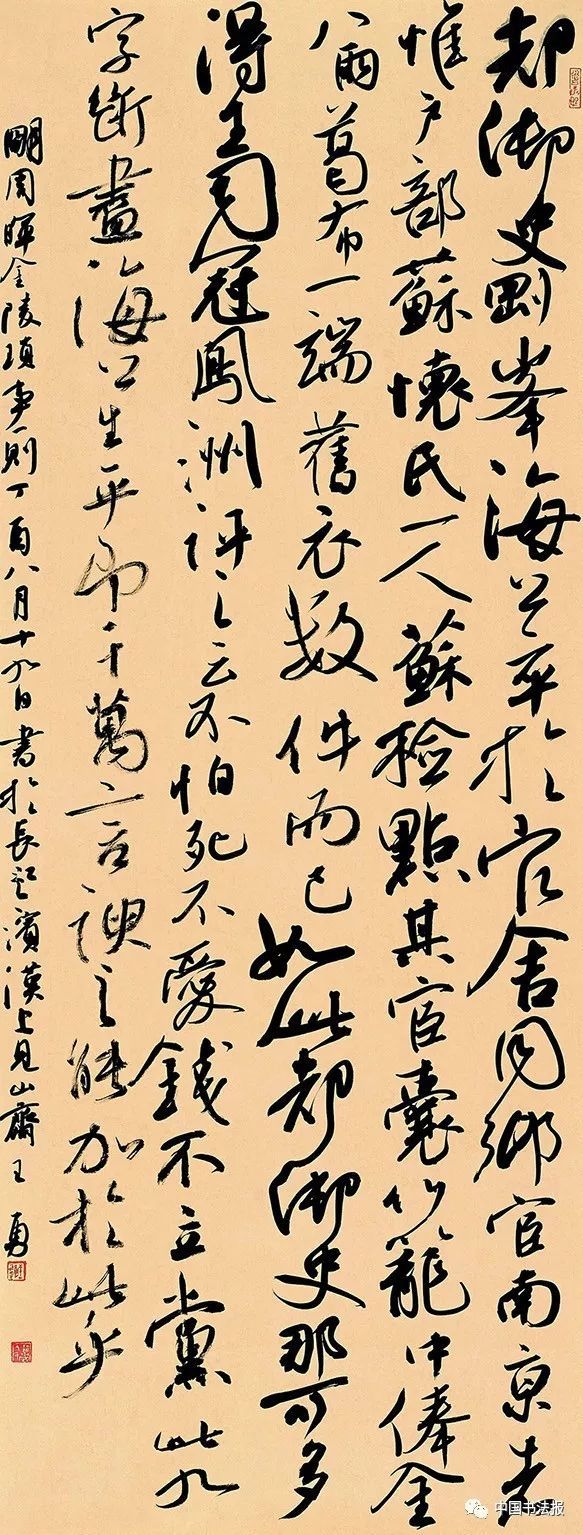 都御史刚峯海公卒於官舍同鄉宦南京者
惟户部蘇懷民一人蘇檢點其宦囊竹籠中俸金
八兩葛布一端舊衣數件而已如此都御史那可多
得王司寇鳳洲評之云不怕死不愛錢不立黨此九
字断盡海公生平即千萬言諛之能加於此乎
明周暉金陵瑣事一則丁酉八月十九日書於長江濱漢上見山齋王勇
中国书法报